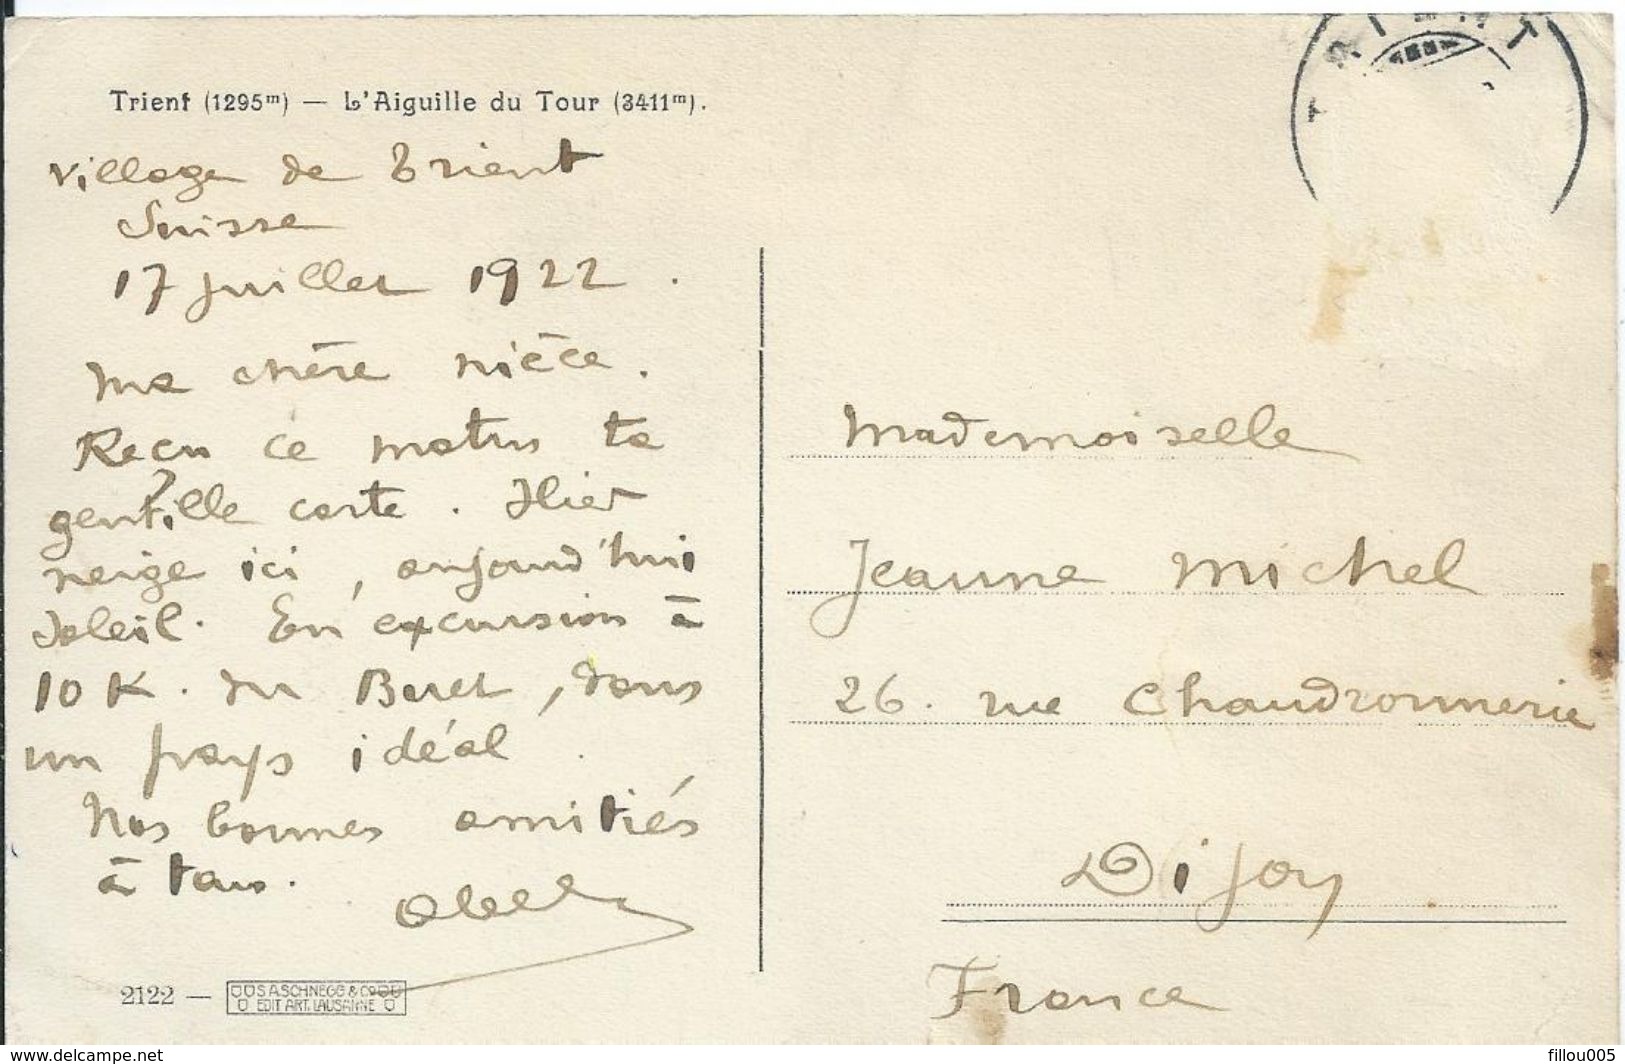 TRIENT
Trient (1295m) — L'Aiguille du Tour (3411m).
Village de Trient
Suisse
17 juillet 1922.
Ma chère nièce.
Reçu ce matin ta
gentille carte. Hier
neige ici, aujourd'hui
soleil. En excursion à
10 K. du Buet, dans
un pays idéal.
Nos bonnes amitiés
à tous.
Abel
Mademoiselle
Jeanne Michel
26. rue Chaudronnerie
Dijon
France
2122 — S.A. SCHNEGG & Co
EDIT. ART. LAUSANNE
www.delcampe.net
fillou005